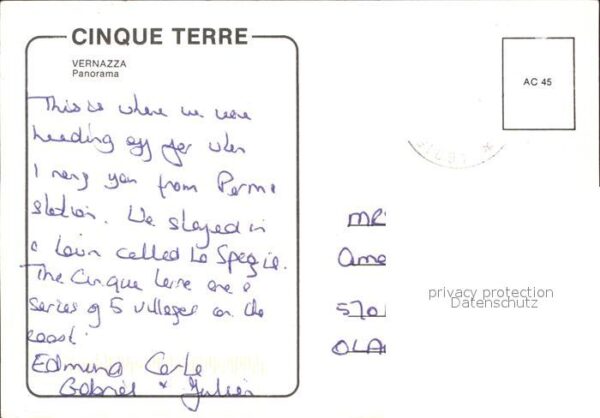 CINQUE TERRE
VERNAZZA
Panorama
AC 45
This is where we were
heading off for when
I rang you from Parma
station. We stayed in
a town called La Spezia.
The Cinque Terre are a
series of 5 villages on the
coast.
Edmund Carla
Gabriel + Julien
MR
Ame
570
OLA
privacy protection
Datenschutz